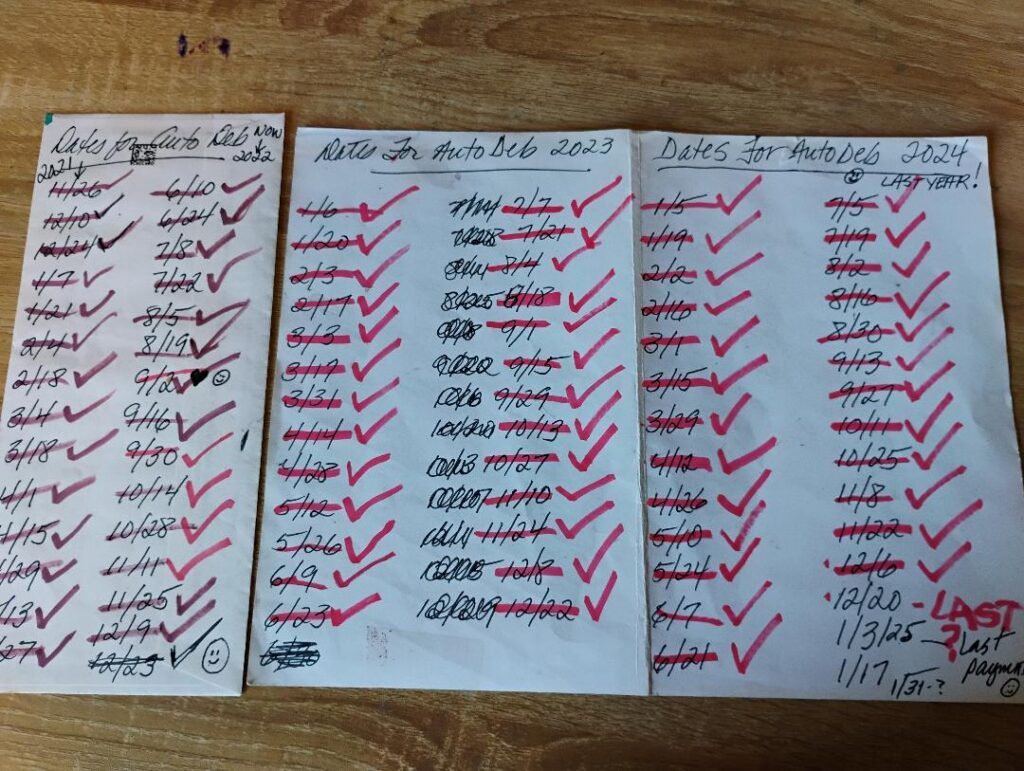 Dates for Auto Deb Now
2021 2022
11/26 6/10
12/10 6/24
12/24 7/8
1/7 7/22
1/21 8/5
2/4 8/19
2/18 9/2
3/4 9/16
3/18 9/30
4/1 10/14
4/15 10/28
4/29 11/11
/13 11/25
/27 12/9
12/23
Dates For Auto Deb 2023
1/6 7/7
1/20 7/21
2/3 8/4
2/17 8/18
3/3 9/1
3/17 9/15
3/31 9/29
4/14 10/13
4/28 10/27
5/12 11/10
5/26 11/24
6/9 12/8
6/23 12/22
Dates For Auto Deb 2024
LAST YEAR!
1/5 7/5
1/19 7/19
2/2 8/2
2/16 8/16
3/1 8/30
3/15 9/13
3/29 9/27
4/12 10/11
4/26 10/25
5/10 11/8
5/24 11/22
6/7 12/6
6/21 12/20 - LAST
1/3/25 - ? Last
1/17 payment
1/31-?